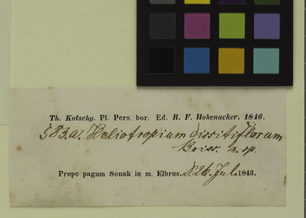 Th. Kotschy. Pl. Pers. bor. Ed. R. F. Hohenacker. 1846.
583.a. Heliotropium dissitiflorum
Boiss. n. sp.
Prope pagum Sonak in m. Elbrus. d. 26. Jul. 1843.